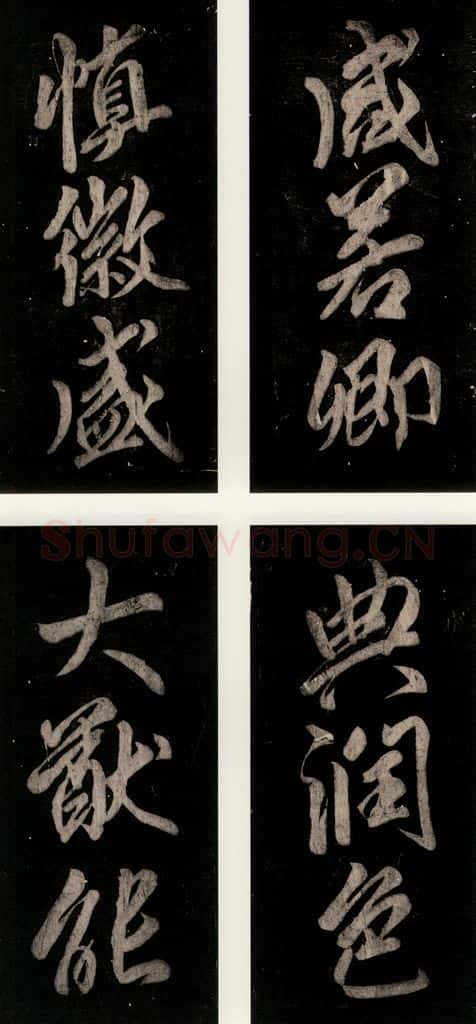 咸若卿
慎徽盛
Shufawang.CN
典润色
大猷能